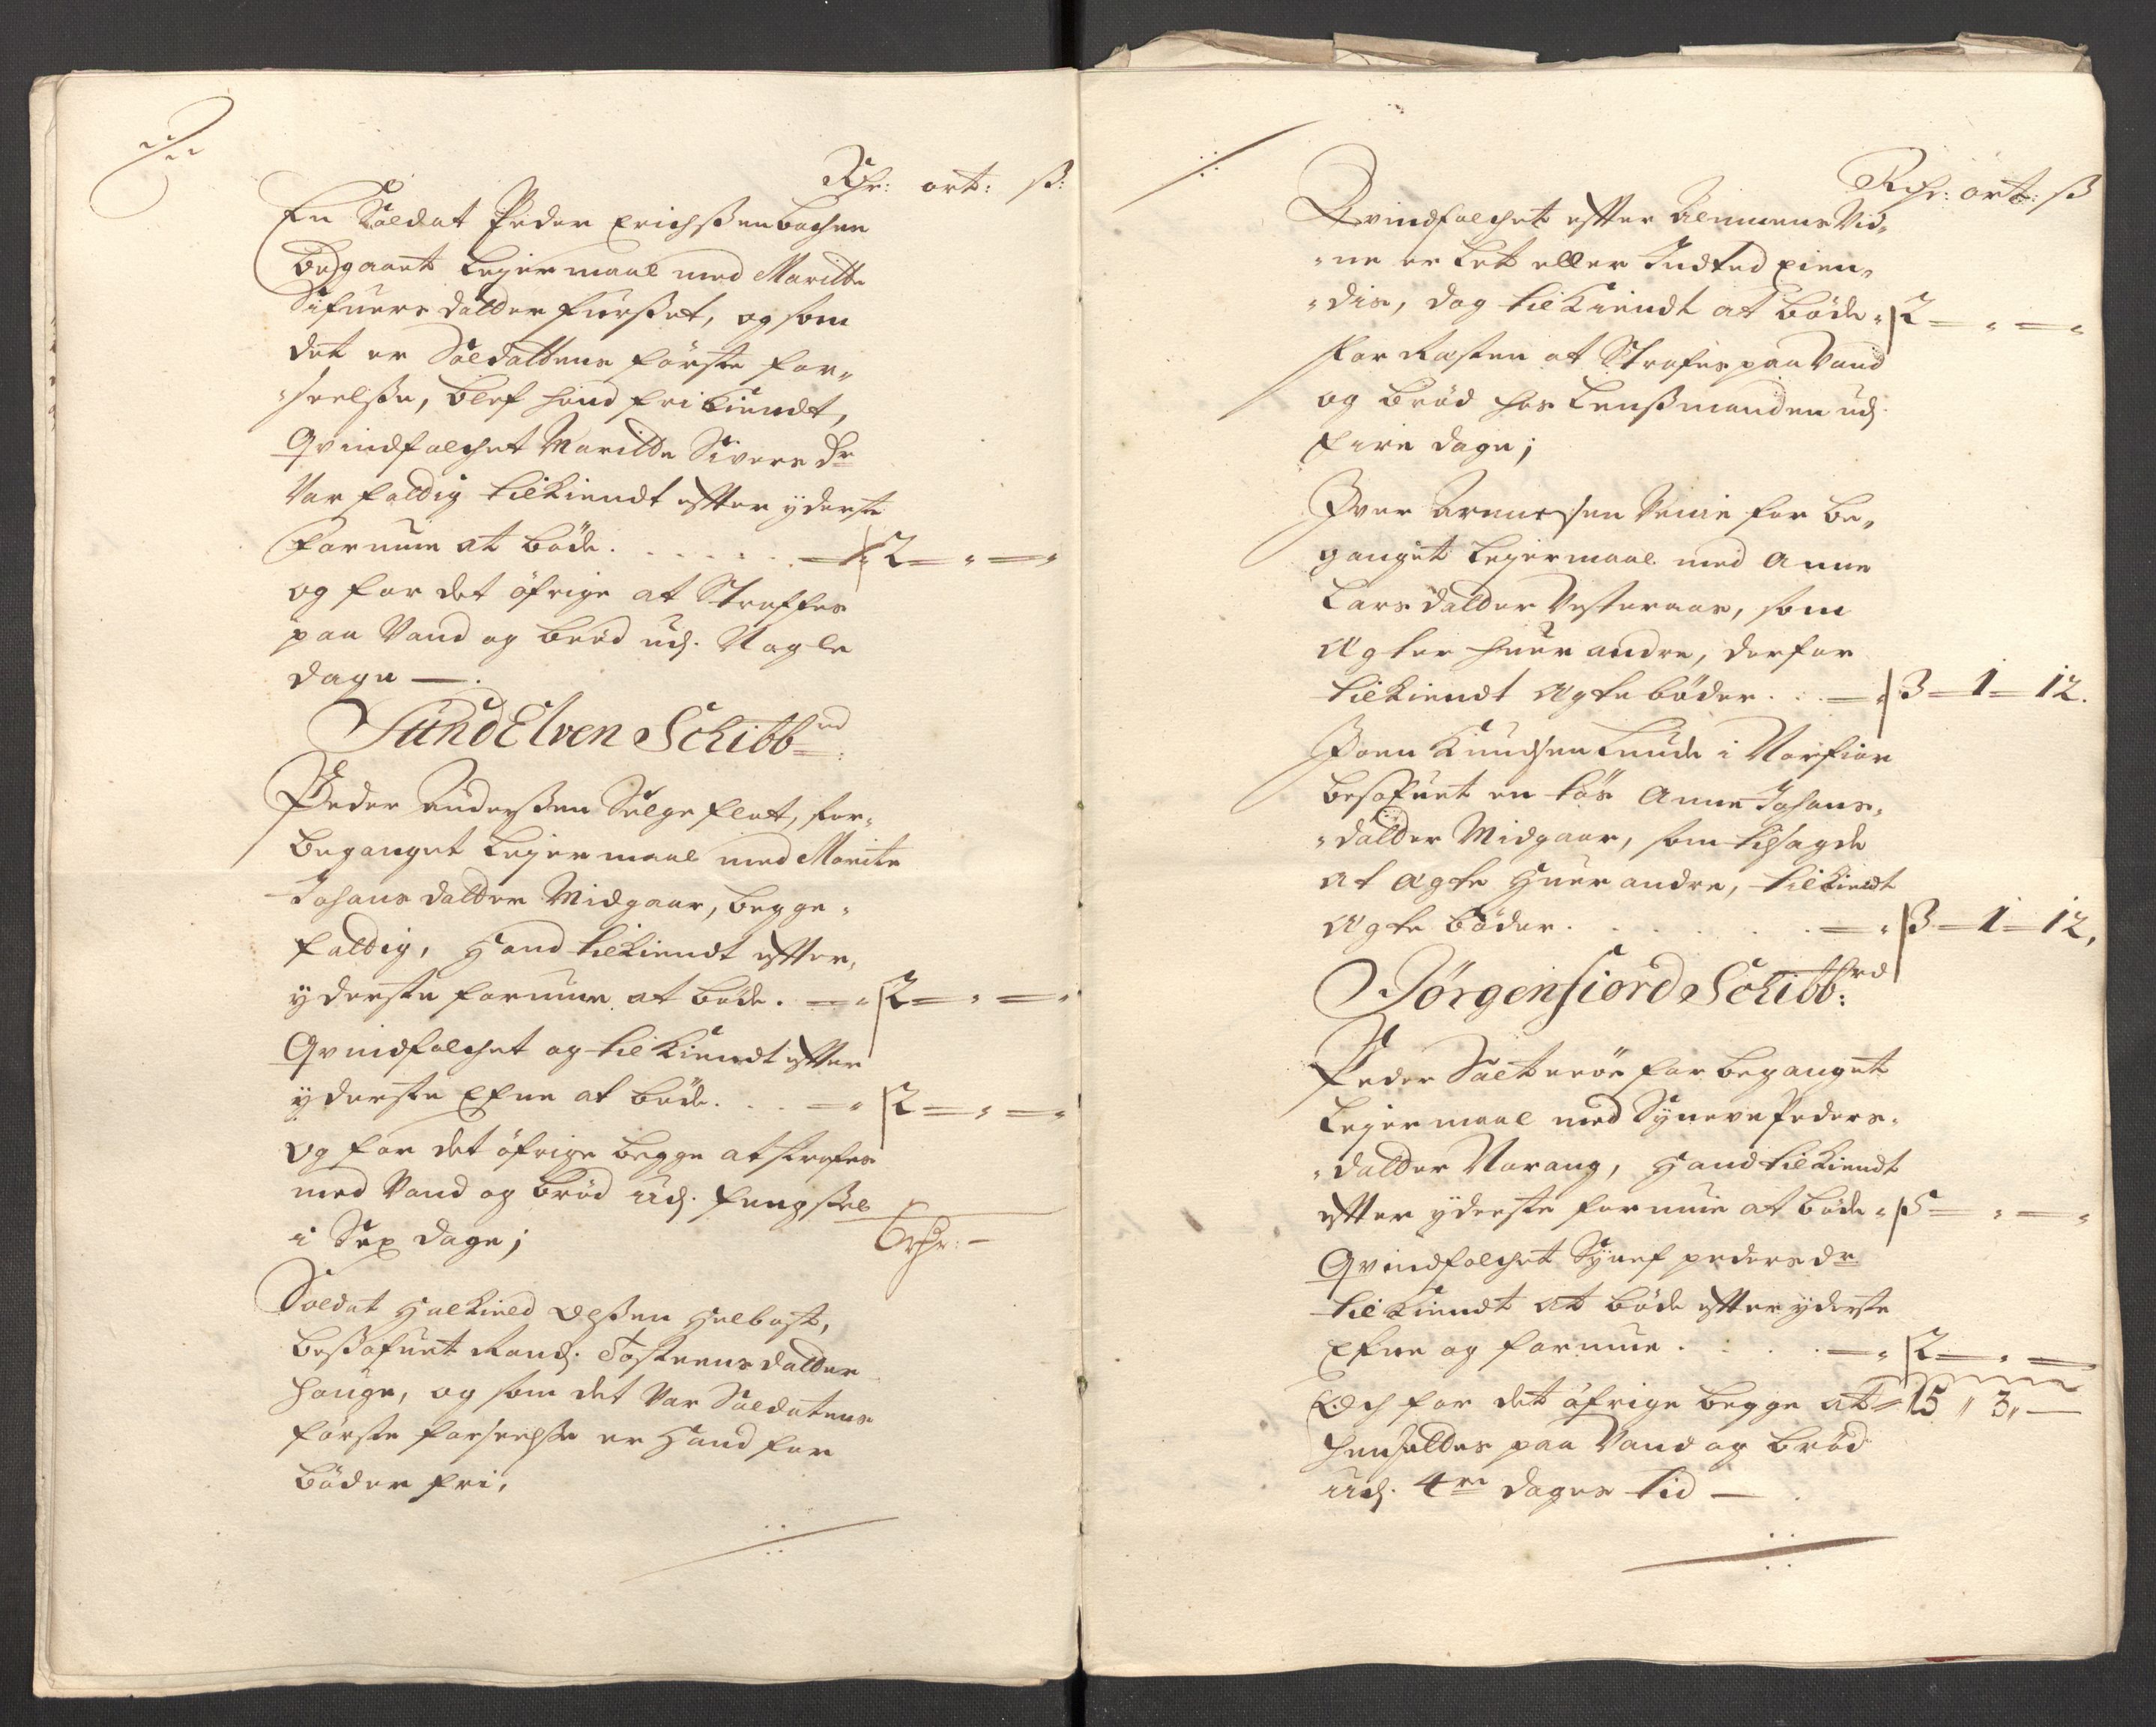 Rdr: ort: ß:
En Soldat Peder Erichßen bachen
Begaaet Leyermaal med Maritte
Sifuers datter furßet, og som
det er Soldattens förste for„
„seelße, blef hand frikiendt,
Qvindfolchet Maritte Sivers dr
Var fældig tilkiendt efter yderste
formue at böde . . . . . . — 2 — „ — „
og for det öfrige at Straffes
paa Vand og bröd udj. Nogle
dage —.
SundElven Schibbrd:
Peder Anderßen Sælgeflot, for„
beganget Leyermaal med Marite
Johans datter Midgaar, begge„
fældig, hand tilkiendt efter„
yderste formue at böde. — „ 2 — „ — „
Qvindfolchet og tilkiendt efter
yderste Efne at böde. . . — „ 2 — „ — „
og for det öfrige begge at strafes
med Vand og bröd udj. fengßel
i Sex dage; 6 rdr: —
Soldat Halkield Olßen Helbost,
beßofuet Randj. Tosteens datter
Hauge, og som det Var Soldatens
förste forseelße er hand for
böder fri,
Rdr: ort: ß
Qvindfolchet efter Almuens Vid„
„ne er let eller Indted eien„
„dis, dog tilkiendt at böde „ 2 — „ — „
for Resten at Strafes paa Vand
og bröd hos Lensßmanden udj.
fire dage;
Iver Arneesen for be„
ganget Leyermaal med Anne
Lars datter Vesteraas, som
Ægter huer andre, derfor
tilkiendt Ægte böder . : . — „ 3 — 1 — 12.
Joen Knudsen Lunde i Norfior
besofuet en lös Anne Johans„
„datter Midgaar, som tilsagde
at Ægte huer andre, tilkiendt
Ægte böder . . . . . . — „ 3 — 1 — 12,
Jörgenfiord Schibbrd:
Peder Sæteröe for beganget
Leyermaal med Syneve Peders„
„datter Norang, hand tilkiendt
efter yderste formue at böde „ 5 — „ — „
Qvindfolchet Synef peders dr
tilkiendt at böde efter yderste
Efne og formue . . . . — „ 2 — „ —
Och for det öfrige begge at 15 „ 3 „ —
henfettes paa Vand og bröd
udj. 4re dages tid —.